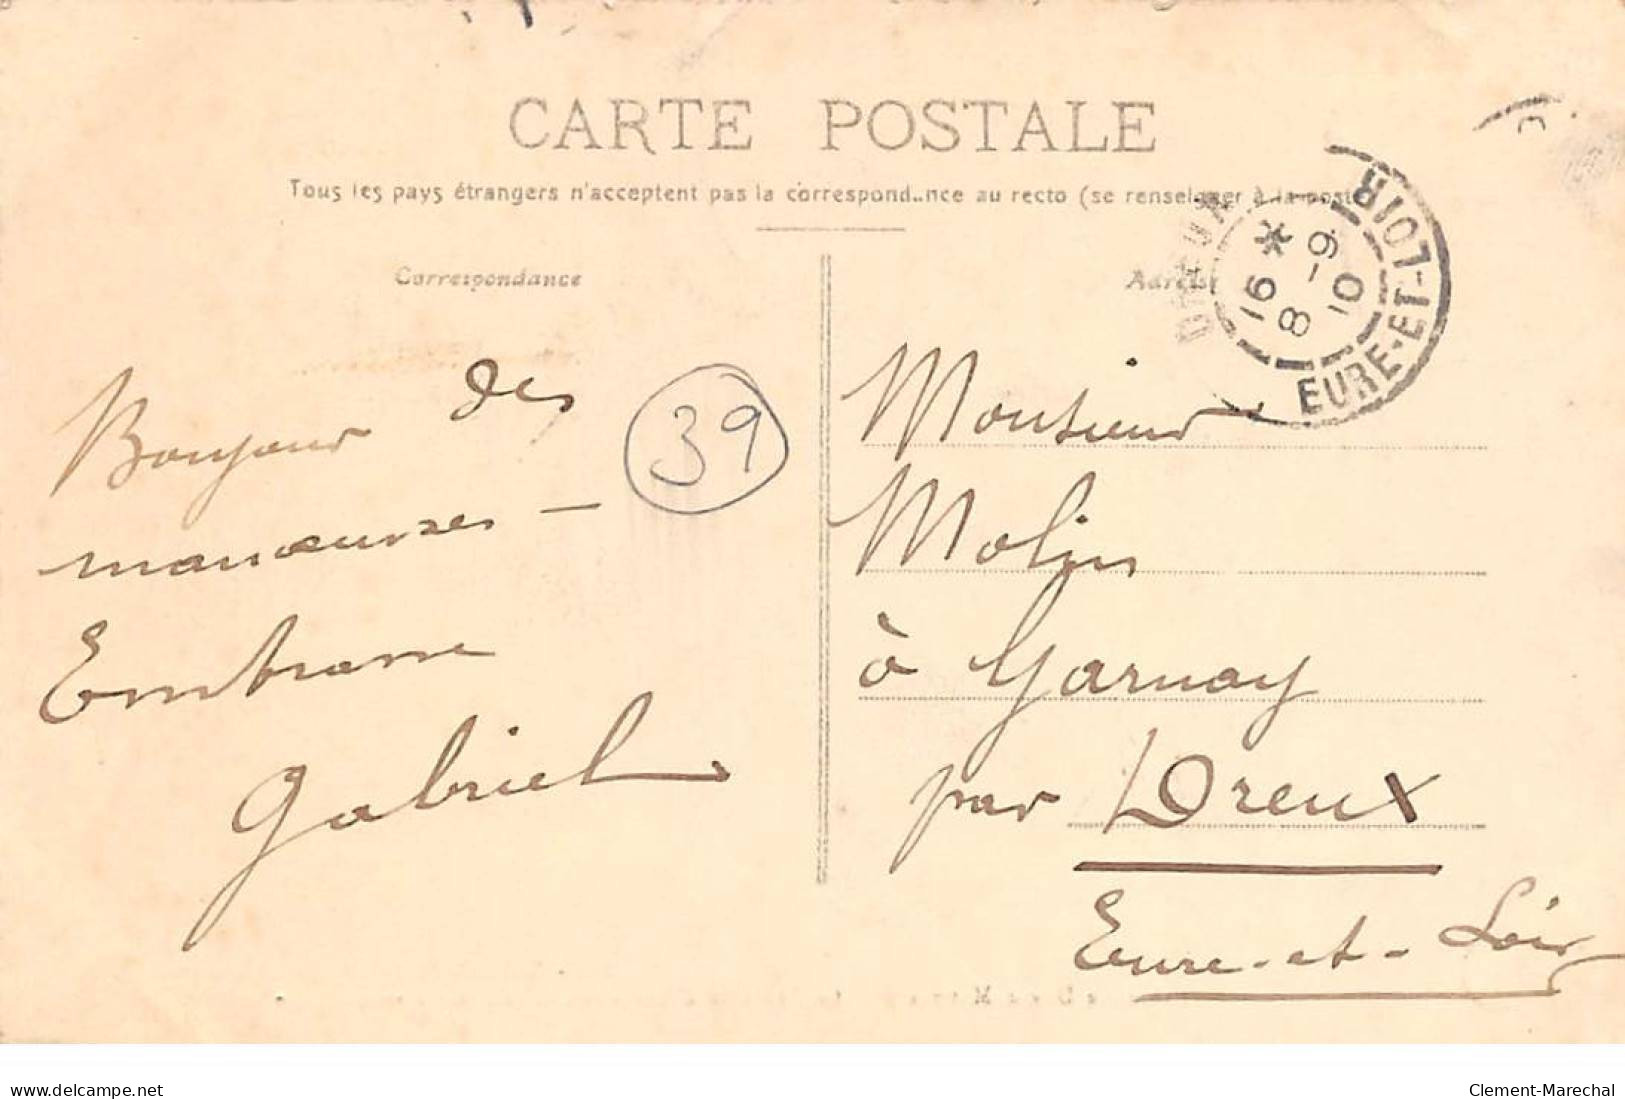 CARTE POSTALE
Tous les pays étrangers n'acceptent pas la correspond..nce au recto (se renseigner à la poste
Correspondance
Bonjour des
manœuvres —
Embrasse
Gabriel
39
Adress
DREUX
EURE-ET-LOIR
16 *
8 - 9
10
Monsieur
Molin
à Garnay
par Dreux
Eure-et-Loir
www.delcampe.net
Clement-Marechal